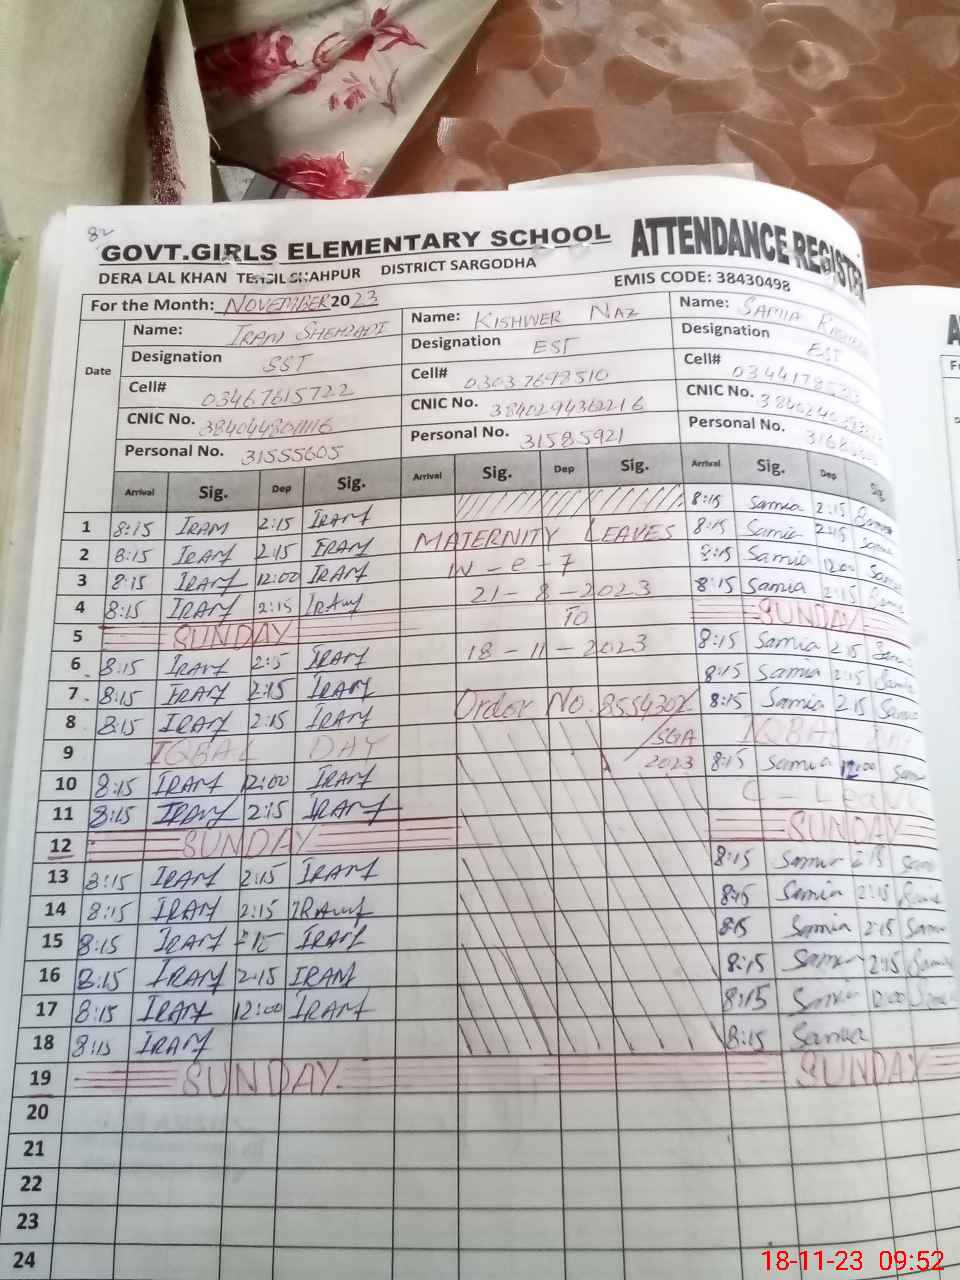 82
GOVT.GIRLS ELEMENTARY SCHOOL ATTENDANCE REGISTER
DERA LAL KHAN TEHSIL SHAHPUR DISTRICT SARGODHA EMIS CODE: 38430498
For the Month: NOVEMBER 2023
Name: IRAM SHEHZADI Name: KISHWER NAZ Name: SAMIA
Designation SST Designation EST Designation EST
Cell# 03467615722 Cell# 03037698510 Cell#
CNIC No. CNIC No. 3840294362216 CNIC No.
Personal No. 31555605 Personal No. 31585921 Personal No.
Date Arrival Sig. Dep Sig. Arrival Sig. Dep Sig. Arrival Sig. Dep Sig.
1 8:15 IRAM 2:15 IRAM 8:15 Samia 2:15 Samia
2 8:15 IRAM 2:15 IRAM MATERNITY LEAVES 8:15 Samia 2:15 Samia
3 8:15 IRAM 12:00 IRAM W-e-f 8:15 Samia 12:00 Samia
4 8:15 IRAM 2:15 IRAM 21-8-2023 8:15 Samia 2:15 Samia
5 SUNDAY To SUNDAY
6 8:15 IRAM 2:15 IRAM 18-11-2023 8:15 Samia 2:15 Samia
7 8:15 IRAM 2:15 IRAM 8:15 Samia 2:15 Samia
8 8:15 IRAM 2:15 IRAM Order No. 8:15 Samia 2:15 Samia
9 IQBAL DAY /SGA IQBAL DAY
10 8:15 IRAM 12:00 IRAM 2023 8:15 Samia 12:00 Samia
11 8:15 IRAM 2:15 IRAM C-Leave
12 SUNDAY SUNDAY
13 8:15 IRAM 2:15 IRAM 8:15 Samia 2:15 Samia
14 8:15 IRAM 2:15 IRAM 8:15 Samia 2:15 Samia
15 8:15 IRAM IRAM 8:15 Samia 2:15 Samia
16 8:15 IRAM 2:15 IRAM 8:15 Samia 2:15 Samia
17 8:15 IRAM 12:00 IRAM 8:15 Samia 12:00 Samia
18 8:15 IRAM 8:15 Samia
19 SUNDAY SUNDAY
20
21
22
23
24
18-11-23 09:52